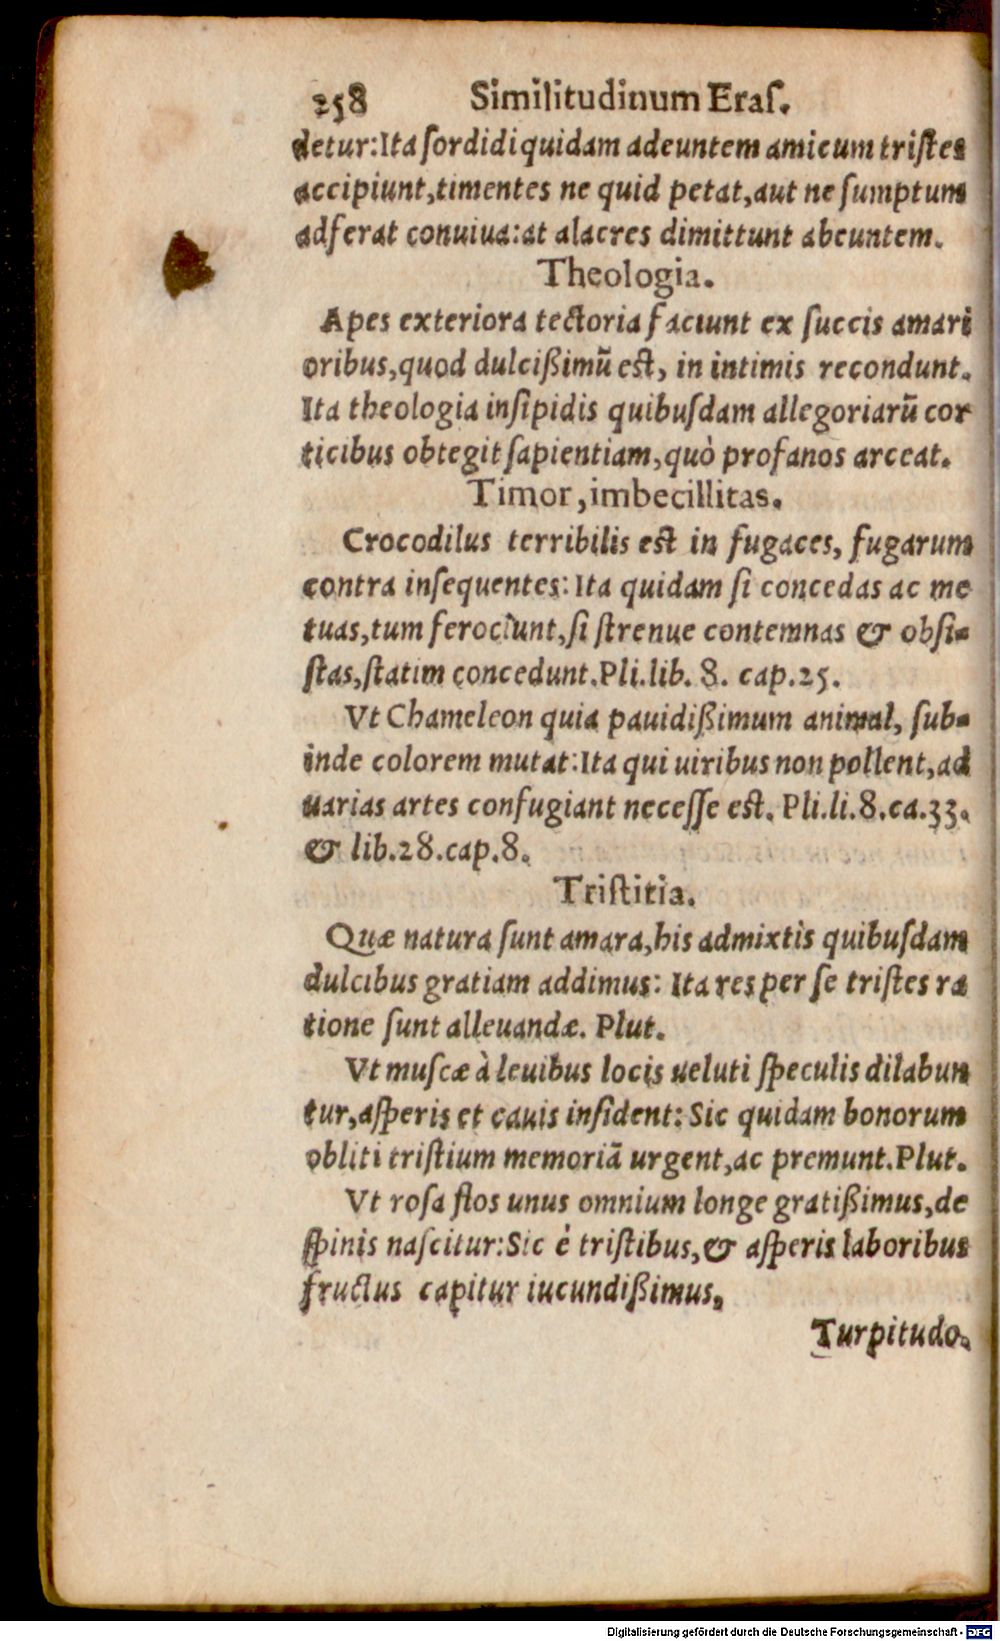 258 Similitudinum Eraſ.
detur:Ita ſordidi quidam adeuntem amicum triſtes
accipiunt,timentes ne quid petat,aut ne ſumptum
adferat conuiua:at alacres dimittunt abeuntem.
Theologia.
Apes exteriora tectoria faciunt ex ſuccis amari
oribus,quod dulcißimū eſt, in intimis recondunt.
Ita theologia inſipidis quibuſdam allegoriarū cor
ticibus obtegit ſapientiam,quò profanos arceat.
Timor,imbecillitas.
Crocodilus terribilis eſt in fugaces, fugarum
contra inſequentes: Ita quidam ſi concedas ac me
tuas,tum ferociunt,ſi ſtrenue contemnas & obſi-
ſtas,ſtatim concedunt.Pli.lib. 8. cap.25.
Vt Chameleon quia pauidißimum animal, ſub-
inde colorem mutat:Ita qui uiribus non pollent,ad
uarias artes confugiant neceſſe eſt. Pli.li.8.ca.33.
& lib.28.cap.8.
Triſtitia.
Quæ natura ſunt amara,his admixtis quibuſdam
dulcibus gratiam addimus: Ita res per ſe triſtes ra
tione ſunt alleuandæ. Plut.
Vt muſcæ à leuibus locis ueluti ſpeculis dilabun
tur,aſperis et cauis inſident: Sic quidam bonorum
obliti triſtium memoriā urgent,ac premunt.Plut.
Vt roſa flos unus omnium longe gratißimus,de
ſpinis naſcitur:Sic è triſtibus,& aſperis laboribus
fructus capitur iucundißimus.
Turpitudo.
Digitalisierung gefördert durch die Deutsche Forschungsgemeinschaft - DFG